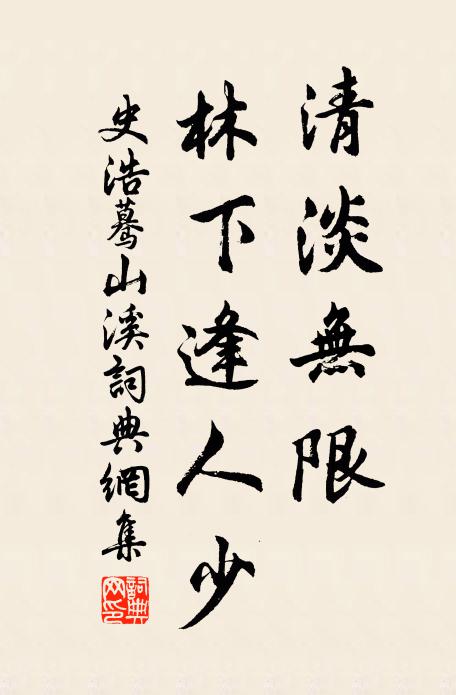 清淡無限
林下逢人少
史浩驀山溪詞典網集
詞典網印